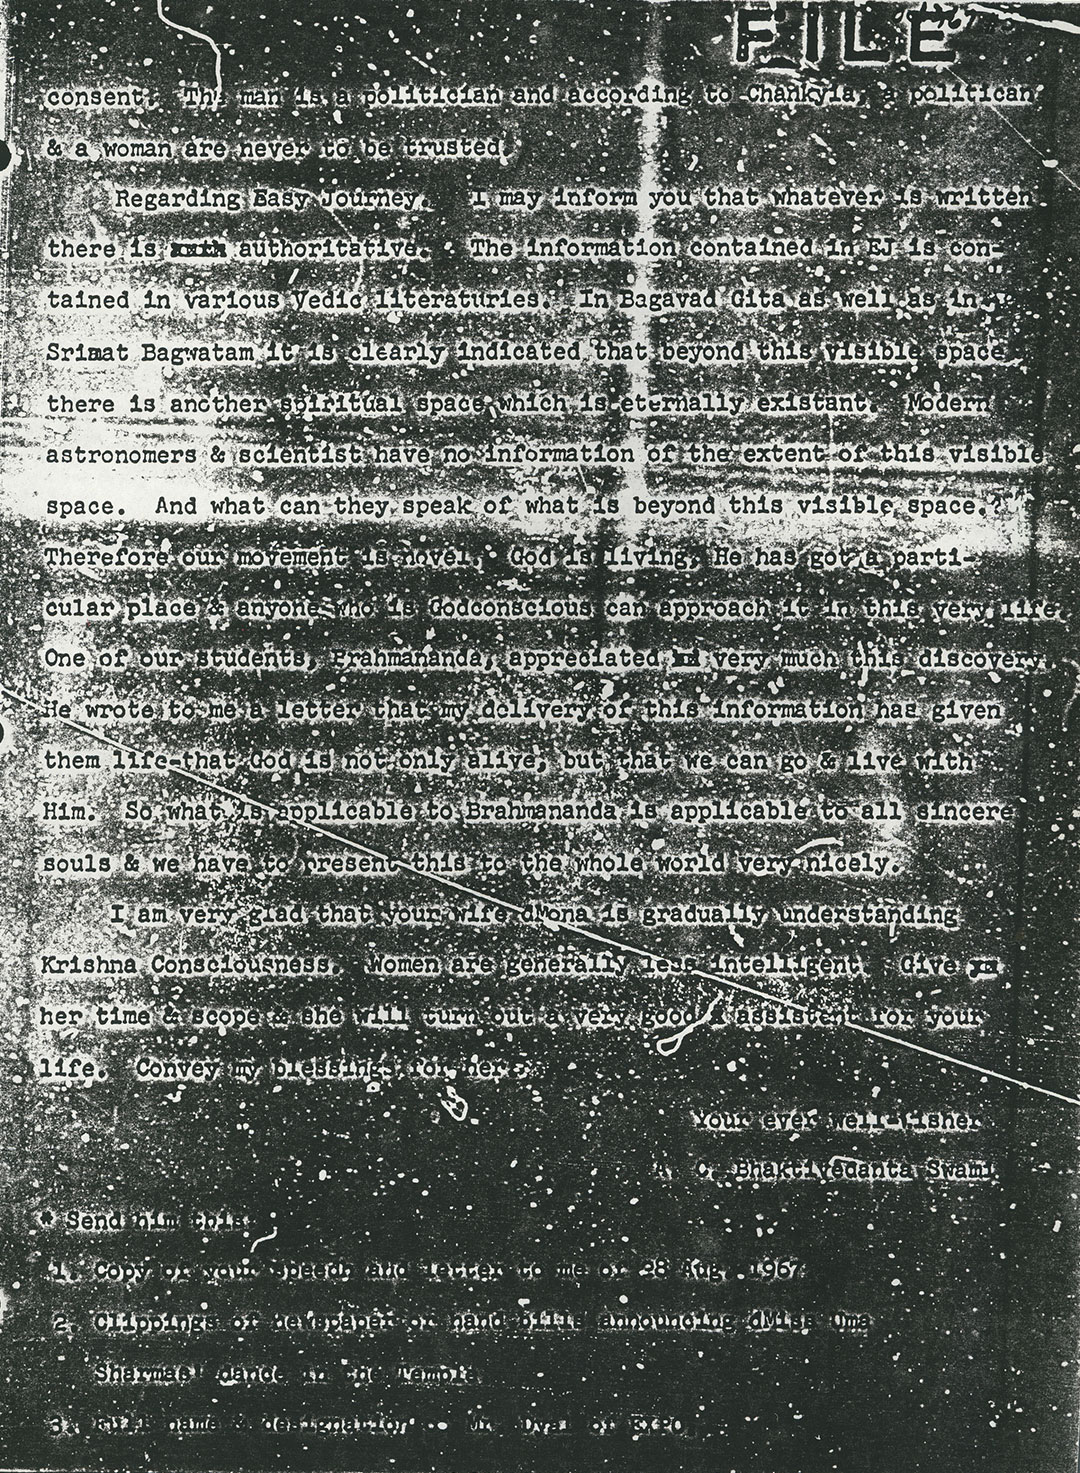 FILE
consent. The man is a politician and according to Chankyla, a politican
& a woman are never to be trusted.
Regarding Easy Journey. I may inform you that whatever is written
there is authoritative. The information contained in EJ is con-
tained in various Vedic literaturies. In Bagavad Gita as well as in
Srimat Bagwatam it is clearly indicated that beyond this visible space
there is another spiritual space which is eternally existant. Modern
astronomers & scientist have no information of the extent of this visible
space. And what can they speak of what is beyond this visible space.?
Therefore our movement is novel. God is living, He has got a parti-
cular place & anyone who is Godconscious can approach it in this very life.
One of our students, Brahmananda, appreciated very much this discovery.
He wrote to me a letter that my delivery of this information has given
them life-that God is not only alive, but that we can go & live with
Him. So what is applicable to Brahmananda is applicable to all sincere
souls & we have to present this to the whole world very nicely.
I am very glad that your wife dMona is gradually understanding
Krishna Consciousness. Women are generally less intelligent. Give
her time & scope & she will turn out a very good assistent for your
life. Convey my blessings for her.
Your ever well-wisher
A. C. Bhaktivedanta Swami
* Send him this:
1. Copy of your speech and letter to me of 28 Aug. 1967
2. Clippings of newspaper or hand bills announcing dMiss Uma
Sharmas' dance in the Temple
3. Full name & designation of Mr. of EXPO